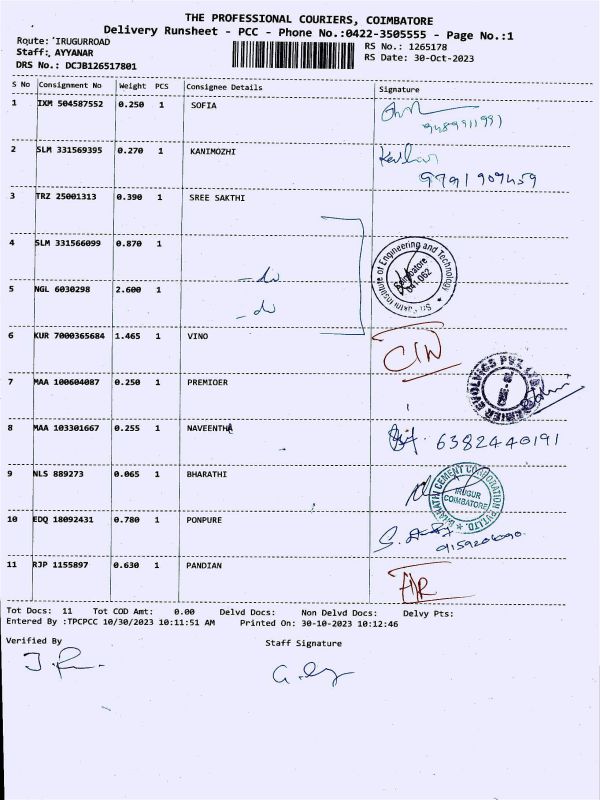 THE PROFESSIONAL COURIERS, COIMBATORE
Delivery Runsheet - PCC - Phone No.:0422-3505555 - Page No.:1
Route: IRUGURROAD
RS No.: 1265178
Staff: AYYANAR
RS Date: 30-Oct-2023
DRS No.: DCJB126517801
S No Consignment No Weight PCS Consignee Details Signature
1 IXM 504587552 0.250 1 SOFIA
2 SLM 331569395 0.270 1 KANIMOZHI
9791909459
3 TRZ 25001313 0.390 1 SREE SAKTHI
4 SLM 331566099 0.870 1
Institute of Engineering and Technology
Coimbatore
641 062
- do
5 NGL 6030298 2.600 1
- do
6 KUR 7000365684 1.465 1 VINO
7 MAA 100604087 0.250 1 PREMIOER
PREMIER EVOLVICS PVT LTD
8 MAA 103301667 0.255 1 NAVEENTHA
6382440191
9 NLS 889273 0.065 1 BHARATHI
BHARATHI CEMENT CORPORATION PVT LTD.
IRUGUR
COIMBATORE
10 EDQ 18092431 0.780 1 PONPURE
11 RJP 1155897 0.630 1 PANDIAN
Tot Docs: 11 Tot COD Amt: 0.00 Delvd Docs: Non Delvd Docs: Delvy Pts:
Entered By :TPCPCC 10/30/2023 10:11:51 AM Printed On: 30-10-2023 10:12:46
Verified By
Staff Signature